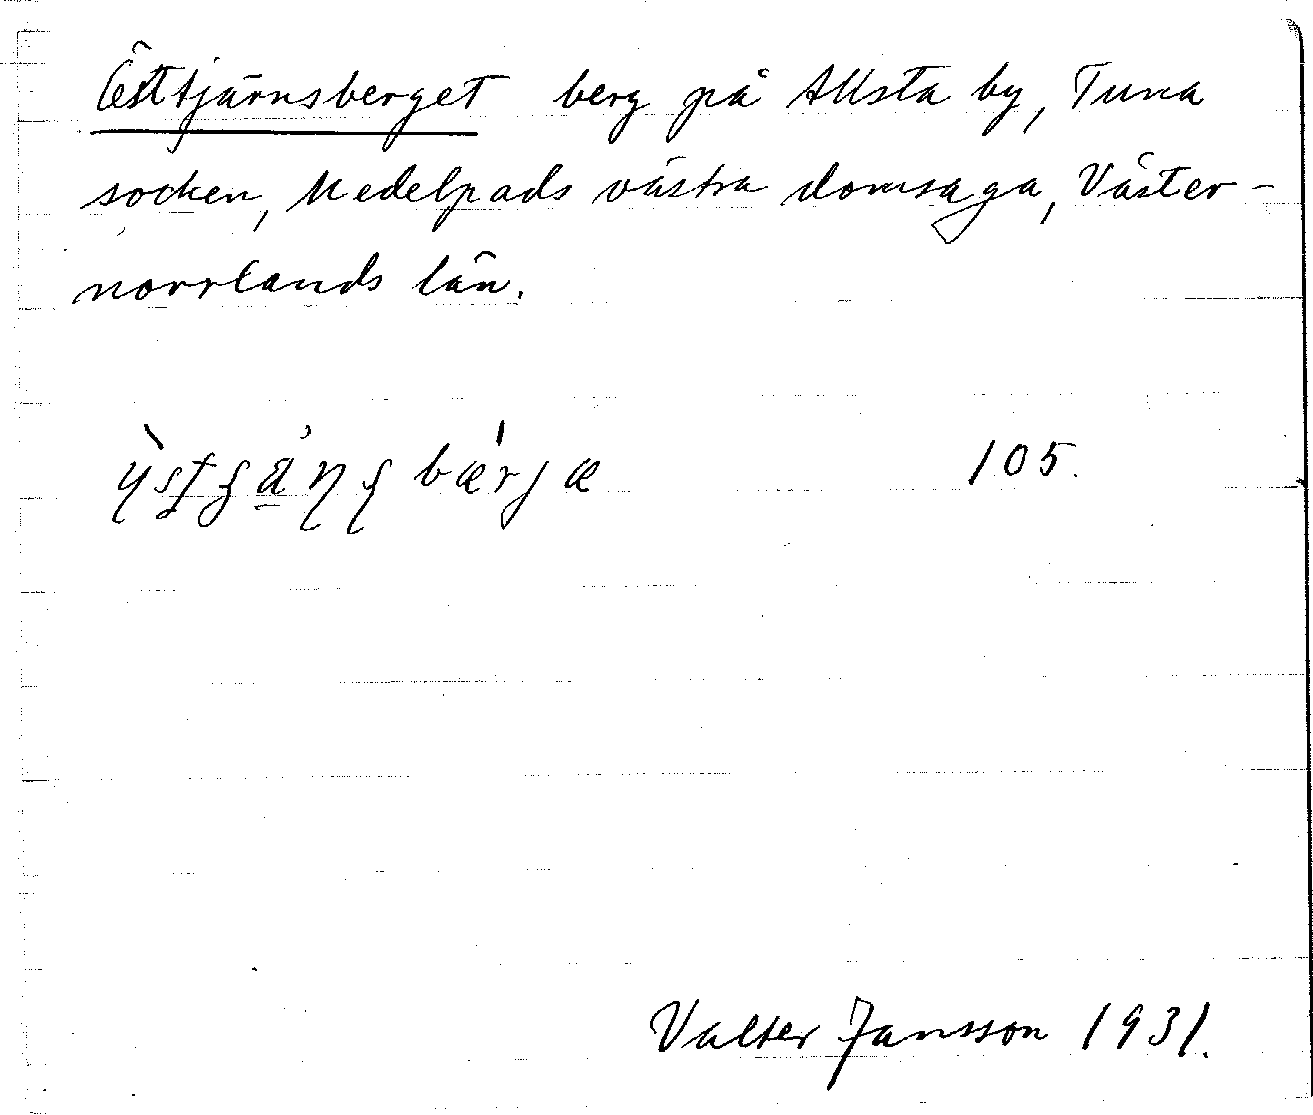 Östtjärnsberget berg på Allsta by, Tuna
socken, Medelpads västra domsaga, Väster-
norrlands län.
105.
Valter Jansson 1931.